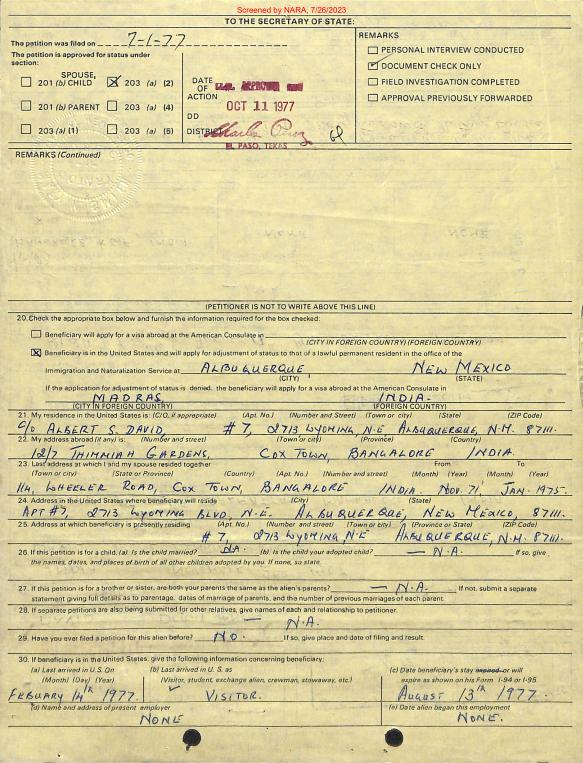 Screened by NARA, 7/26/2023
TO THE SECRETARY OF STATE:
The petition was filed on 7-1-77
The petition is approved for status under section:
SPOUSE,
201 (b) CHILD 203 (a) (2)
201 (b) PARENT 203 (a) (4)
203 (a) (1) 203 (a) (5)
DATE OF ACTION
OCT 11 1977
DD
DISTRICT
EL PASO, TEXAS
REMARKS
PERSONAL INTERVIEW CONDUCTED
DOCUMENT CHECK ONLY
FIELD INVESTIGATION COMPLETED
APPROVAL PREVIOUSLY FORWARDED
REMARKS (Continued)
(PETITIONER IS NOT TO WRITE ABOVE THIS LINE)
20. Check the appropriate box below and furnish the information required for the box checked:
Beneficiary will apply for a visa abroad at the American Consulate in
(CITY IN FOREIGN COUNTRY) (FOREIGN COUNTRY)
Beneficiary is in the United States and will apply for adjustment of status to that of a lawful permanent resident in the office of the
Immigration and Naturalization Service at ALBUQUERQUE NEW MEXICO
(CITY) (STATE)
If the application for adjustment of status is denied, the beneficiary will apply for a visa abroad at the American Consulate in
MADRAS INDIA.
(CITY IN FOREIGN COUNTRY) (FOREIGN COUNTRY)
21. My residence in the United States is: (C/O, if appropriate) (Apt. No.) (Number and Street) (Town or city) (State) (ZIP Code)
C/o ALBERT S. DAVID, #7, 2713 WYOMING, N.E ALBUQUERQUE, N.M. 87111.
22. My address abroad (if any) is: (Number and street) (Town or city) (Province) (Country)
12/7 THIMMIAH GARDENS, COX TOWN, BANGALORE INDIA.
23. Last address at which I and my spouse resided together From To
(Town or city) (State or Province) (Country) (Apt. No.) (Number and street) (Month) (Year) (Month) (Year)
114, WHEELER ROAD, COX TOWN, BANGALORE INDIA NOV. 71' JAN. 1975.
24. Address in the United States where beneficiary will reside (City) (State)
APT #7, 2713 WYOMING BLVD, N.E. ALBUQUERQUE, NEW MEXICO, 87111.
25. Address at which beneficiary is presently residing (Apt. No.) (Number and street) (Town or city) (Province or State) (ZIP Code)
#7, 2713 WYOMING N.E ALBUQUERQUE, N.M. 87111.
26. If this petition is for a child, (a). Is the child married? NA. (b). Is the child your adopted child? — N.A. If so, give
the names, dates, and places of birth of all other children adopted by you. If none, so state.
27. If this petition is for a brother or sister, are both your parents the same as the alien's parents? — N.A. If not, submit a separate
statement giving full details as to parentage, dates of marriage of parents, and the number of previous marriages of each parent.
28. If separate petitions are also being submitted for other relatives, give names of each and relationship to petitioner.
— N.A.
29. Have you ever filed a petition for this alien before? NO. If so, give place and date of filing and result.
30. If beneficiary is in the United States, give the following information concerning beneficiary:
(a) Last arrived in U.S. On (b) Last arrived in U.S. as (c) Date beneficiary's stay expired or will
(Month) (Day) (Year) (Visitor, student, exchange alien, crewman, stowaway, etc.) expire as shown on his Form I-94 or I-95
FEBUARY 14th 1977. VISITOR. AUGUST 13th 1977.
(d) Name and address of present employer (e) Date alien began this employment
NONE NONE.